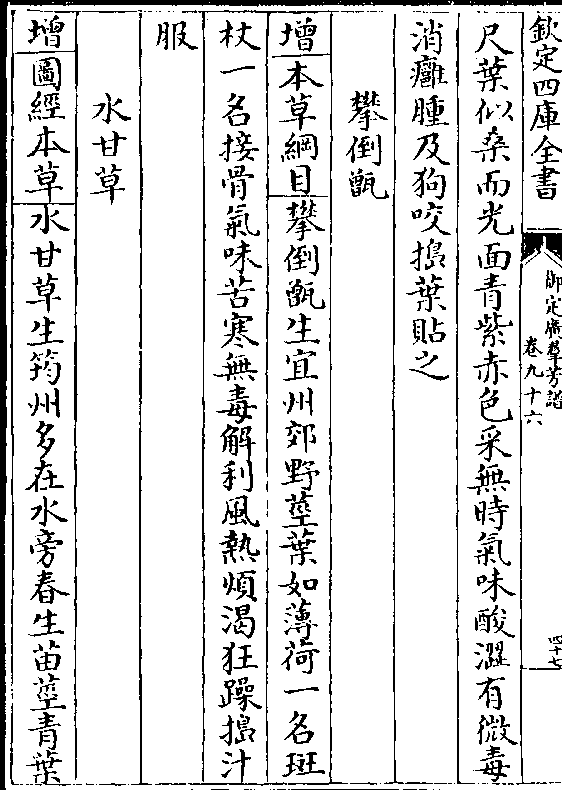 欽定四庫全書
御定廣羣芳譜
卷九十六
四十七
尺葉似桑而光面青紫赤色采無時氣味酸澀有微毒
消癰腫及狗咬搗葉貼之
攀倒甑
增本草綱目攀倒甑生宜州郊野莖葉如薄荷一名斑
杖一名接骨氣味苦寒無毒解利風熱煩渴狂躁搗汁
服
水甘草
增圖經本草水甘草生筠州多在水旁春生苗莖青葉